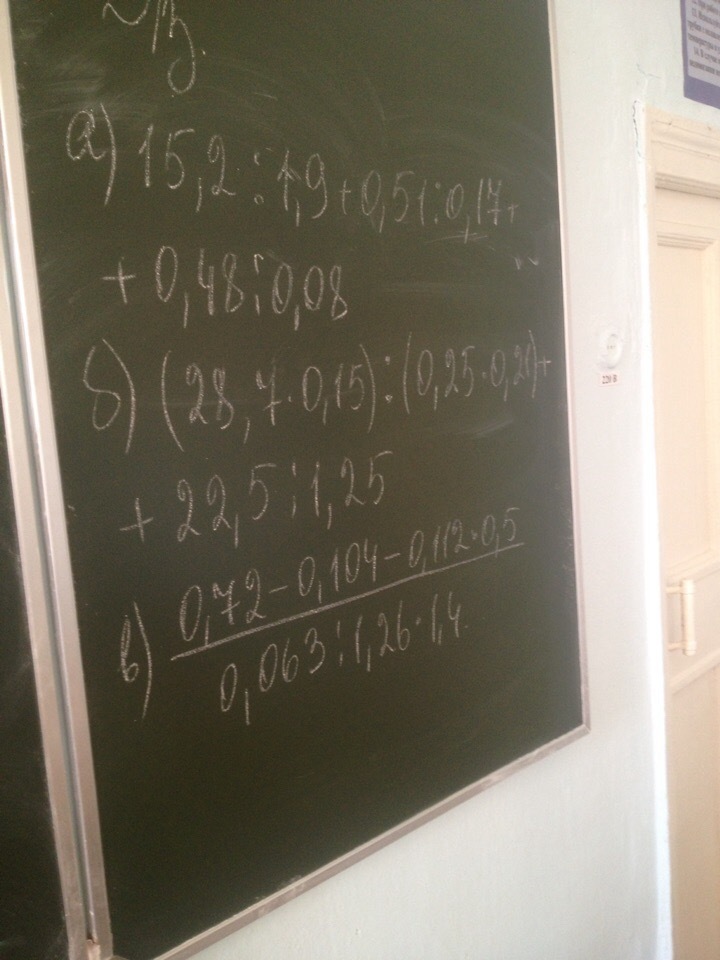 Д/з.
а) 15,2 : 1,9 + 0,51 : 0,17 +
+ 0,48 : 0,08
б) (28,7 · 0,15) : (0,25 · 0,21) +
+ 22,5 : 1,25
в) 0,72 - 0,104 - 0,112 · 0,5
0,063 : 1,26 · 1,4
220 В